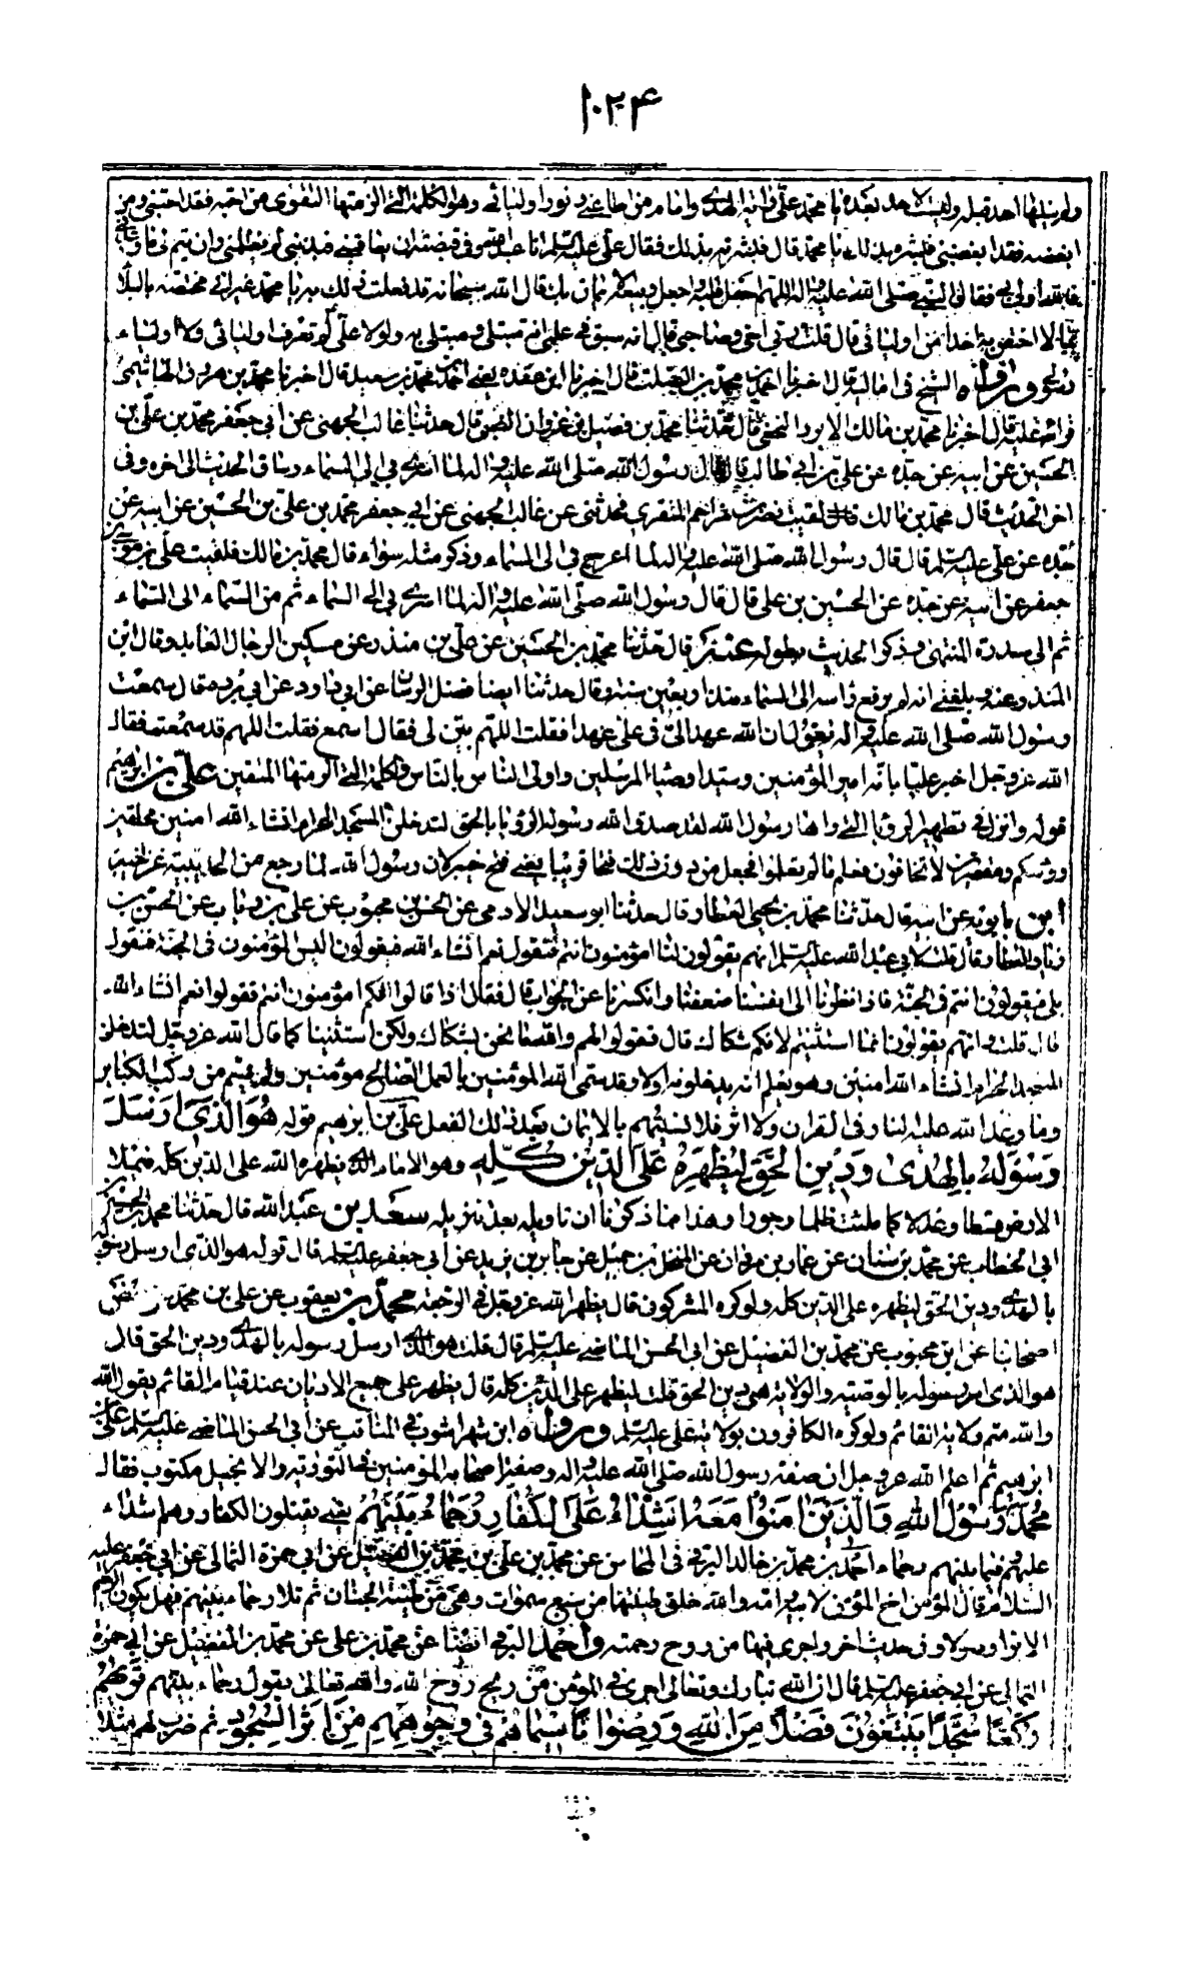 ١٠٢٤
ولم ينلها احد قبله وليست لاحد بعده يا محمد علي راية الهدى وامام من اطاعني ونور اوليائي وهو الكلمة التي الزمتها المتقوى من احبه فقد احبني ومن
ابغضه فقد ابغضني فبشره بذلك يا محمد قال فبشرته بذلك فقال علي عليه السلم انا عبد الله وفى قبضته ان يعاقبني فبذنبي لم يظلمني وان يتم لى ما وعدني
فالله اولى بى فقال النبي صلى الله عليه واله اللهم اجل قلبه واجعل ربيعه الايمان بك قال الله سبحانه قد فعلت ذلك به يا محمد غير انى مختصه بالبلاء
بما لا اختص به احدا من اوليائى قال قلت ربي اخى وصاحبى قال انه سبق فى علمي انه مبتلى ومبتلى به ولولا علي لم تعرف اوليائى ولا اولياء
رسلي ورواه الشيخ فى اماليه قال اخبرنا احمد بن محمد بن الصلت قال اخبرنا ابن عقده يعني احمد بن محمد بن سعيد قال اخبرنا محمد بن هرون الهاشمي
قراءة عليه قال اخبرنا محمد بن مالك الابرد النخعي قال حدثنا محمد بن فضيل بن غزوان الضبي قال حدثنا غالب الجهنى عن ابى جعفر محمد بن علي بن
الحسين عن ابيه عن جده عن علي بن ابى طالب قال قال رسول الله صلى الله عليه واله لما اسرى بى الى السماء وساق الحديث الى اخره وفى
اخر الحديث قال محمد بن مالك فلقيت نصر بن مزاحم المنقرى فحدثنى عن غالب الجهنى عن ابى جعفر محمد بن علي بن الحسين عن ابيه عن
جده عن علي عليه السلم قال قال رسول الله صلى الله عليه واله لما عرج بى الى السماء وذكر مثله سواء قال محمد بن مالك فلقيت علي بن موسى بن
جعفر عن ابيه عن جده عن الحسين بن علي قال قال رسول الله صلى الله عليه واله لما اسرى بى الى السماء ثم من السماء الى السماء
ثم الى سدرة المنتهى وذكر الحديث بطوله عنه قال حدثنا محمد بن الحسين عن علي بن منذر عن مسكين الرحال العابد وقال ابن
المنذر عنه وبلغنى انه لم يرفع راسه الى السماء منذ اربعين سنة وقال حدثنا ايضا فضل الرسان عن ابى داود عن ابى بردة قال سمعت
رسول الله صلى الله عليه واله يقول ان الله عهد الى فى علي عهدا فقلت اللهم بين لى فقال اسمع فقلت اللهم قد سمعت فقال
الله عز وجل اخبر عليا بانه امير المؤمنين وسيد اوصياء المرسلين واولى الناس بالناس والكلمة التي الزمتها المتقين علي بن ابراهيم
قوله وانزل فى تطهير الرؤيا التي راها رسول الله لقد صدق الله رسوله الرؤيا بالحق لتدخلن المسجد الحرام انشاء الله امنين محلقين
رؤسكم ومقصرين لا تخافون فعلم ما لم تعلموا فجعل من دون ذلك فتحا قريبا يعنى فتح خيبر لان رسول الله لما رجع من الحديبية غزا خيبر
ابن بابويه عن ابيه قال حدثنا محمد بن يحيى العطار قال حدثنا ابو سعيد الادمى عن الحسن بن محبوب عن علي بن رئاب عن الحسن بن
زياد العطار قال قلت لابى عبد الله عليه السلم انهم يقولون لنا امؤمنون انتم فنقول نعم انشاء الله فيقولون اليس المؤمنون فى الجنة فنقول
بلى فيقولون انتم فى الجنة فاذا نظرنا الى انفسنا ضعفنا وانكسرنا عن الجواب قال فقال اذا قالوا لكم امؤمنون انتم فقولوا نعم انشاء الله
قال قلت وانهم يقولون انما استثنيتم لانكم شكاك قال فقولوا لهم والله ما نحن بشكاك ولكن استثنينا كما قال الله عز وجل لتدخلن
المسجد الحرام انشاء الله امنين وهو يعلم انه يدخلونه اولا وقد سمى الله المؤمنين بالعمل الصالح مؤمنين ولم يسم من ركب الكبائر
وما وعد الله عليه النار فى القران ولا اثر فلا نسميهم بالايمان بعد ذلك الفعل علي بن ابراهيم قوله هُوَ الَّذِى اَرْسَلَ
رَسُولَهُ بِالْهُدىٰ وَدِينِ الْحَقِّ لِيُظْهِرَهُ عَلَى الدِّينِ كُلِّهِ وهو الامام الذى يظهره الله على الدين كله فيملأ
الارض قسطا وعدلا كما ملئت ظلما وجورا وهذا مما ذكرنا ان تاويله بعد تنزيله سعد بن عبد الله قال حدثنا محمد بن الحسين بن
ابى الخطاب عن محمد بن سنان عن عمار بن مروان عن المنخل بن جميل عن جابر بن يزيد عن ابى جعفر عليه السلم قال قوله هو الذى ارسل رسوله
بالهدى ودين الحق ليظهره على الدين كله ولو كره المشركون قال يظهره الله عز وجل فى الرجعة محمد بن يعقوب عن علي بن محمد عن بعض
اصحابنا عن ابن محبوب عن محمد بن الفضيل عن ابى الحسن الماضي عليه السلم قال قلت هو الذى ارسل رسوله بالهدى ودين الحق قال
هو الذى امر رسوله بالوصية والولاية هى دين الحق قلت ليظهره على الدين كله قال يظهره على جميع الاديان عند قيام القائم يقول الله
والله متم ولاية القائم ولو كره الكافرون بولاية علي عليه السلم ورواه ابن شهراشوب فى المناقب عن ابى الحسن الماضي عليه السلم علي بن
ابرهيم ثم اعلم الله عز وجل ان صفة رسول الله صلى الله عليه واله وصفة اصحابه المؤمنين فى التورية والانجيل مكتوب فقال
مُحَمَّدٌ رَسُولُ اللهِ وَالَّذِينَ امَنُوا مَعَهُ اَشِدَّاءُ عَلَى الْكُفَّارِ رُحَمَاءُ بَيْنَهُمْ يعنى يقتلون الكفار وهم اشداء
عليهم وفيما بينهم رحماء احمد بن محمد بن خالد البرقى فى المحاسن عن محمد بن علي بن محمد بن الفضيل عن ابى حمزة الثمالى عن ابى جعفر عليه
السلام قال المؤمن اخ المؤمن لابيه وامه والله خلق طينتها من سبع سموات وهى من طينة الجنان ثم تلا رحماء بينهم فهل يكون الرحم
الا برا وصولا وفى حديث اخر واجرى فيها من روح رحمته واحمد البرقى ايضا عن محمد بن علي عن محمد بن الفضيل عن ابى حمزة
الثمالى عن ابى جعفر عليه السلم قال ان الله تبارك وتعالى اجرى فى المؤمن من ريح روح الله والله تعالى يقول رحماء بينهم تَرٰيهُمْ
رُكَّعًا سُجَّدًا يَبْتَغُونَ فَضْلًا مِنَ اللهِ وَرِضْوانًا سِيمَاهُمْ فِى وُجُوهِهِمْ مِنْ اَثَرِ السُّجُودِ ثم ضرب لهم مثلا